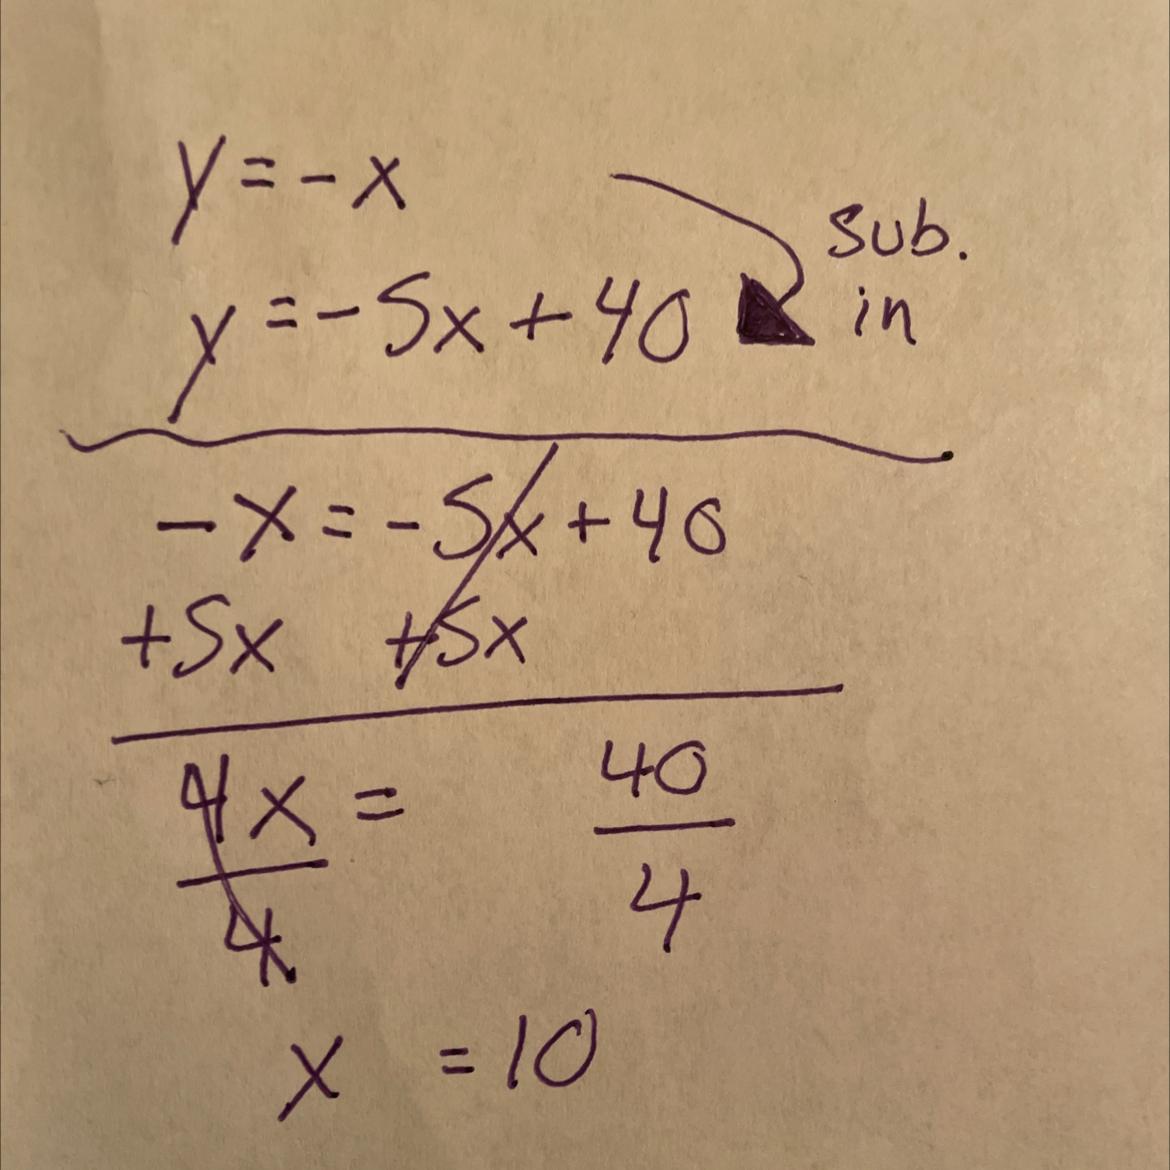 y = - x
y = - 5x + 40
sub.
in
- x = - 5x + 40
+5x +5x
4x = 40
4 4
x = 10